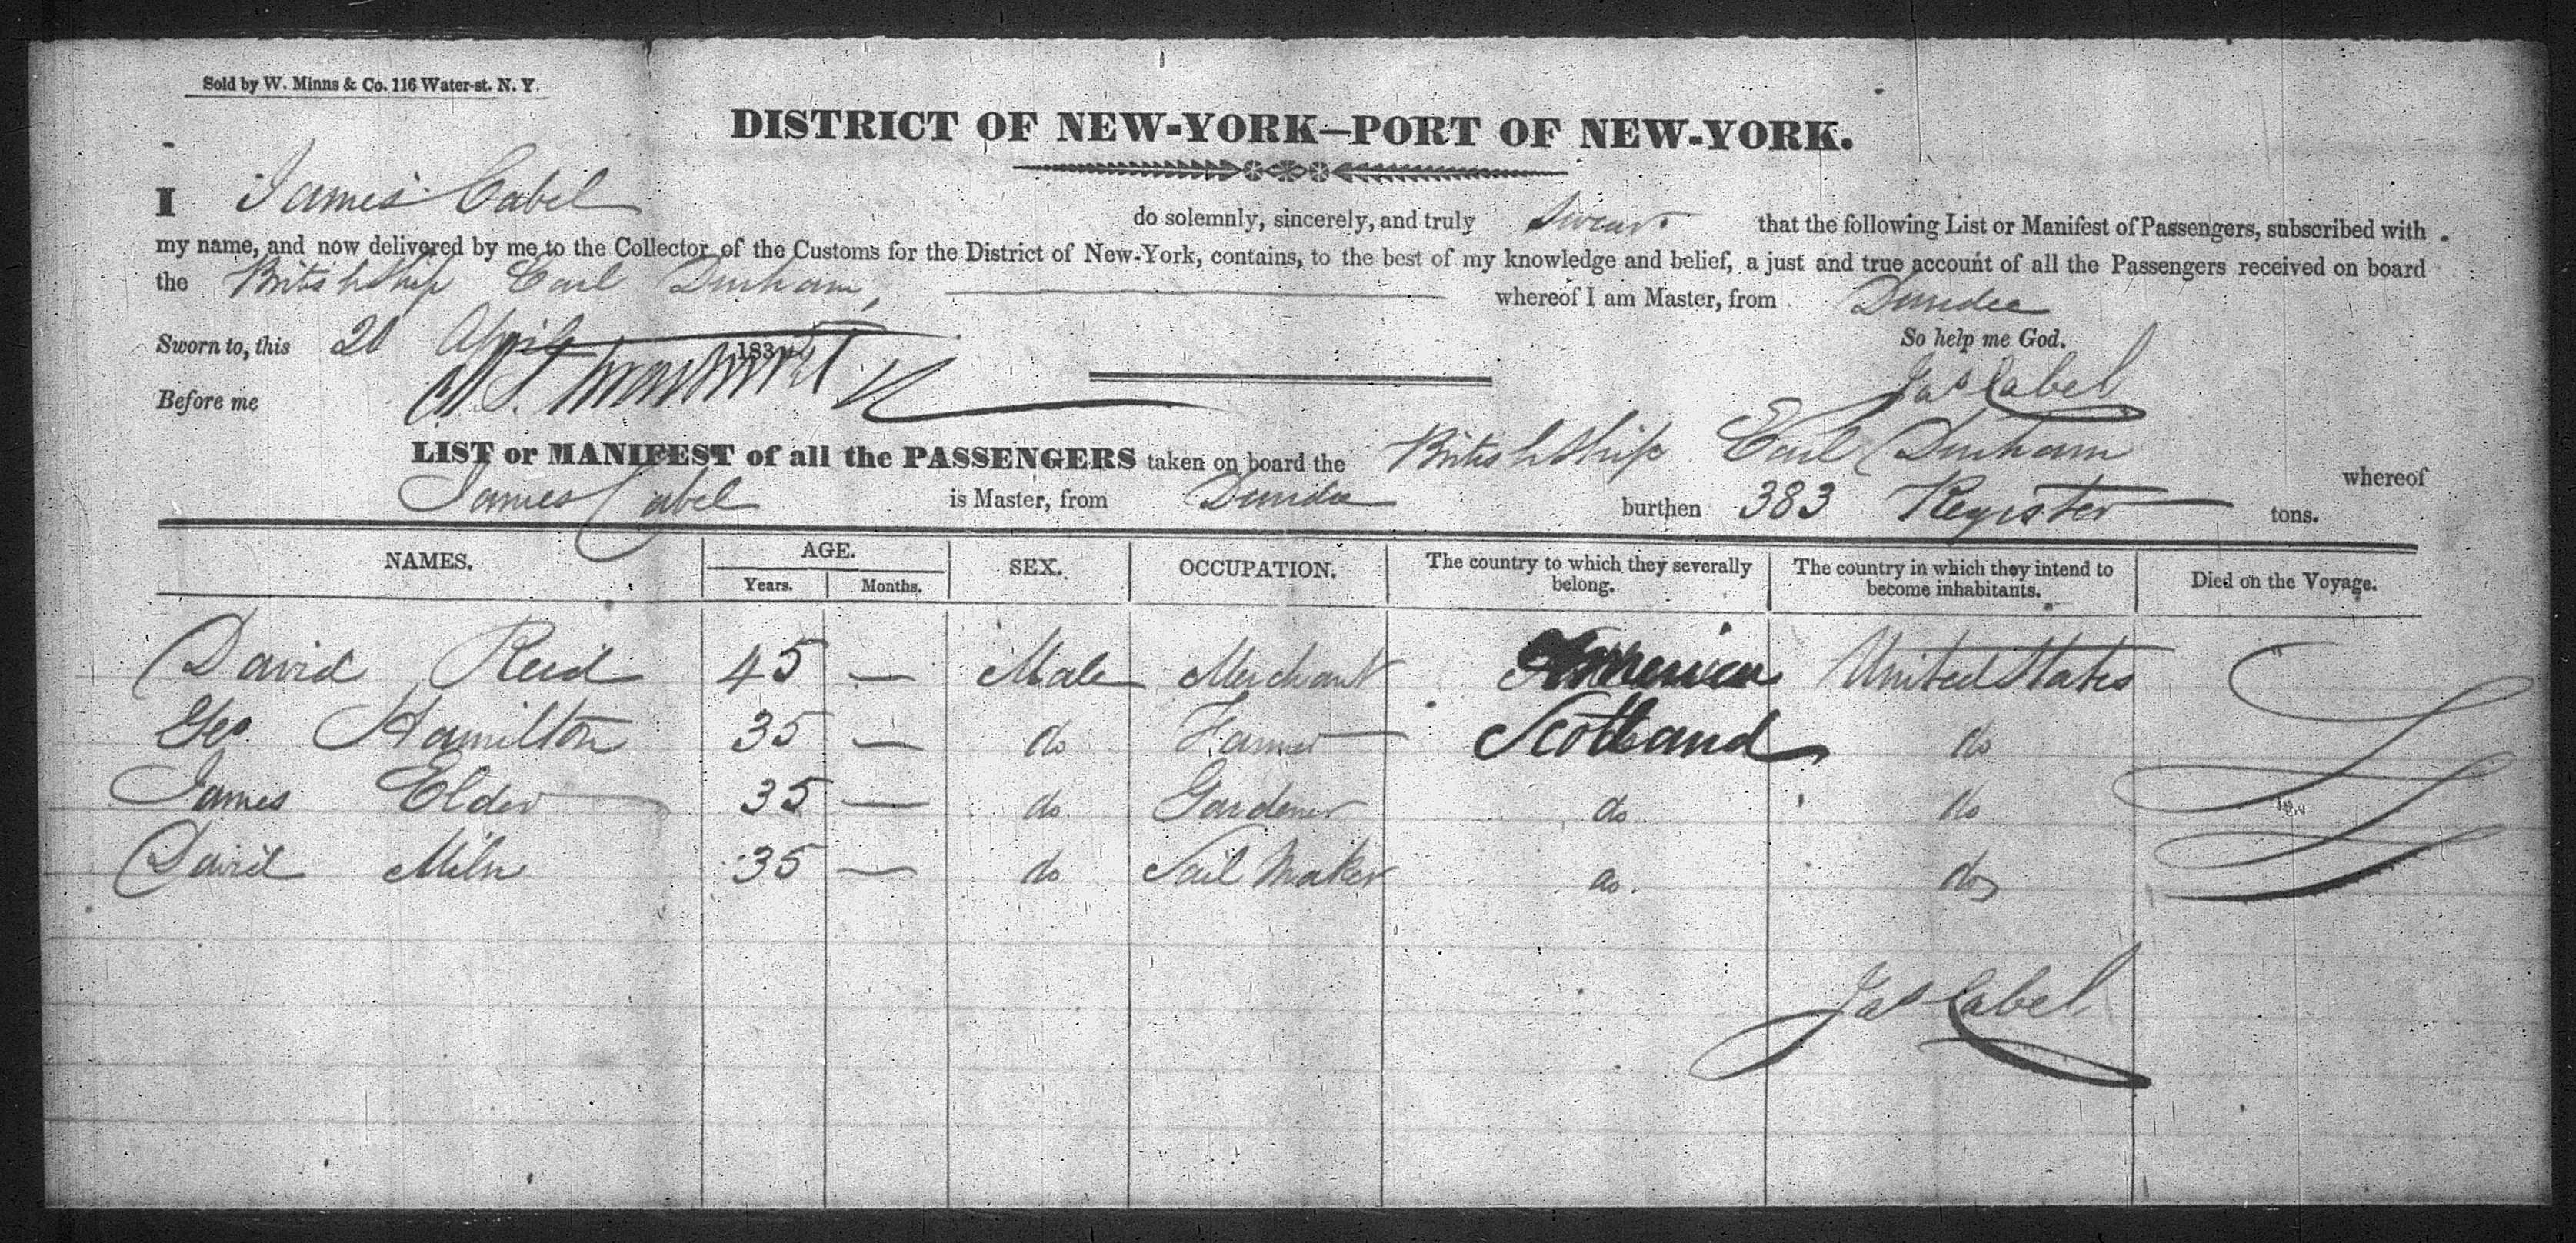 Sold by W. Minns & Co. 116 Water-st. N. Y.
DISTRICT OF NEW-YORK—PORT OF NEW-YORK.
I James Cabel do solemnly, sincerely, and truly swear that the following List or Manifest of Passengers, subscribed with
my name, and now delivered by me to the Collector of the Customs for the District of New-York, contains, to the best of my knowledge and belief, a just and true account of all the Passengers received on board
the British Ship Earl Durham, whereof I am Master, from Dundee
Sworn to, this 20 April 183 So help me God.
Before me Jas Cabel
LIST or MANIFEST of all the PASSENGERS taken on board the British Ship Earl Durham whereof
James Cabel is Master, from Dundee burthen 383 Register tons.
NAMES. AGE. SEX. OCCUPATION. The country to which they severally belong. The country in which they intend to become inhabitants. Died on the Voyage.
Years. Months.
David Reid 45 — Male Merchant America United States
Geo. Hamilton 35 — do Farmer Scotland do
James Elder 35 — do Gardener do do
David Miln 35 — do Sail Maker do. do
Jas Cabel